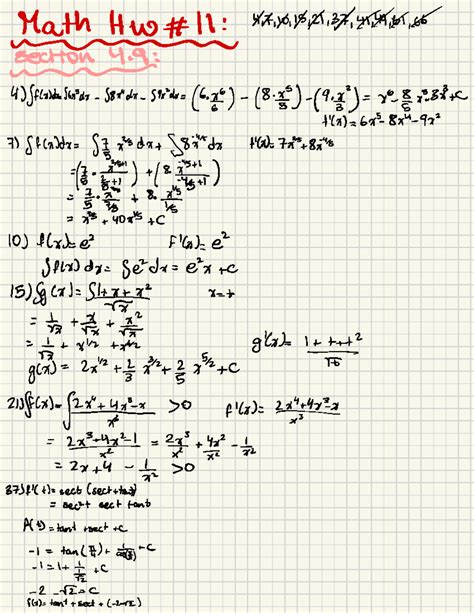 Math Hw #11: 4,7,10,15,21,37,41,49,61,66
section 4.9:
4) ∫f(x)dx = ∫6x⁵dx - ∫8x⁴dx - ∫9x²dx = (6·x⁶/6) - (8·x⁵/5) - (9·x³/3) = x⁶ - 8/5 x⁵ - 3x³ + C
f'(x) = 6x⁵ - 8x⁴ - 9x²
7) ∫f(x)dx = ∫7/5 x^(2/5) dx + ∫8x^(-4/5) dx f'(x) = 7x^(2/5) + 8x^(-4/5)
= (7/5 · x^(2/5+1)/(2/5+1)) + (8 x^(-4/5+1)/(-4/5+1))
= 7/5 · x^(7/5)/(7/5) + 8 x^(1/5)/(1/5)
= x^(7/5) + 40x^(1/5) + C
10) f(x) = e² F'(x) = e²
∫f(x)dx = ∫e²dx = e²x + C
15) ∫g(x) = ∫(1+x+x²)/√x x=t
= 1/√x + x/√x + x²/√x
= 1/√x + x^(1/2) + x^(3/2) g'(x) = (1+t+t²)/√t
g(x) = 2x^(1/2) + 2/3 x^(3/2) + 2/5 x^(5/2) + C
21) ∫f(x) = ∫(2x⁴+4x³-x)/x³ >0 f'(x) = (2x⁴+4x³-x)/x³
= (2x³+4x²-1)/x² = 2x³/x² + 4x²/x² - 1/x²
= 2x+4 - 1/x² >0
37) f'(t) = sect (sect+tant)
= sec²t sect tant
f(t) = tant + sect + C
-1 = tan(π/4) + 1/cos(π/4) + C
-1 = 1 + 1/(1/√2) + C
-2 - √2 = C
f(x) = tant + sect + (-2-√2)